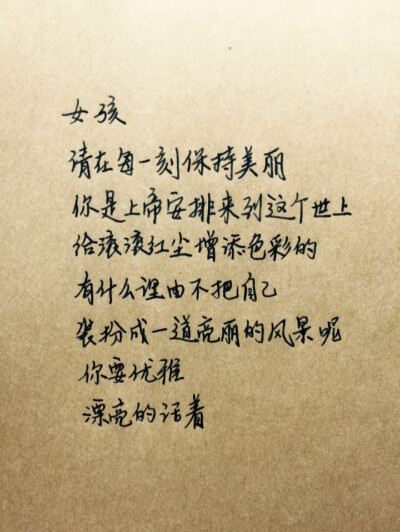 女孩
请在每一刻保持美丽
你是上帝安排来到这个世上
给滚滚红尘增添色彩的
有什么理由不把自己
装扮成一道亮丽的风景呢
你要优雅
漂亮的活着